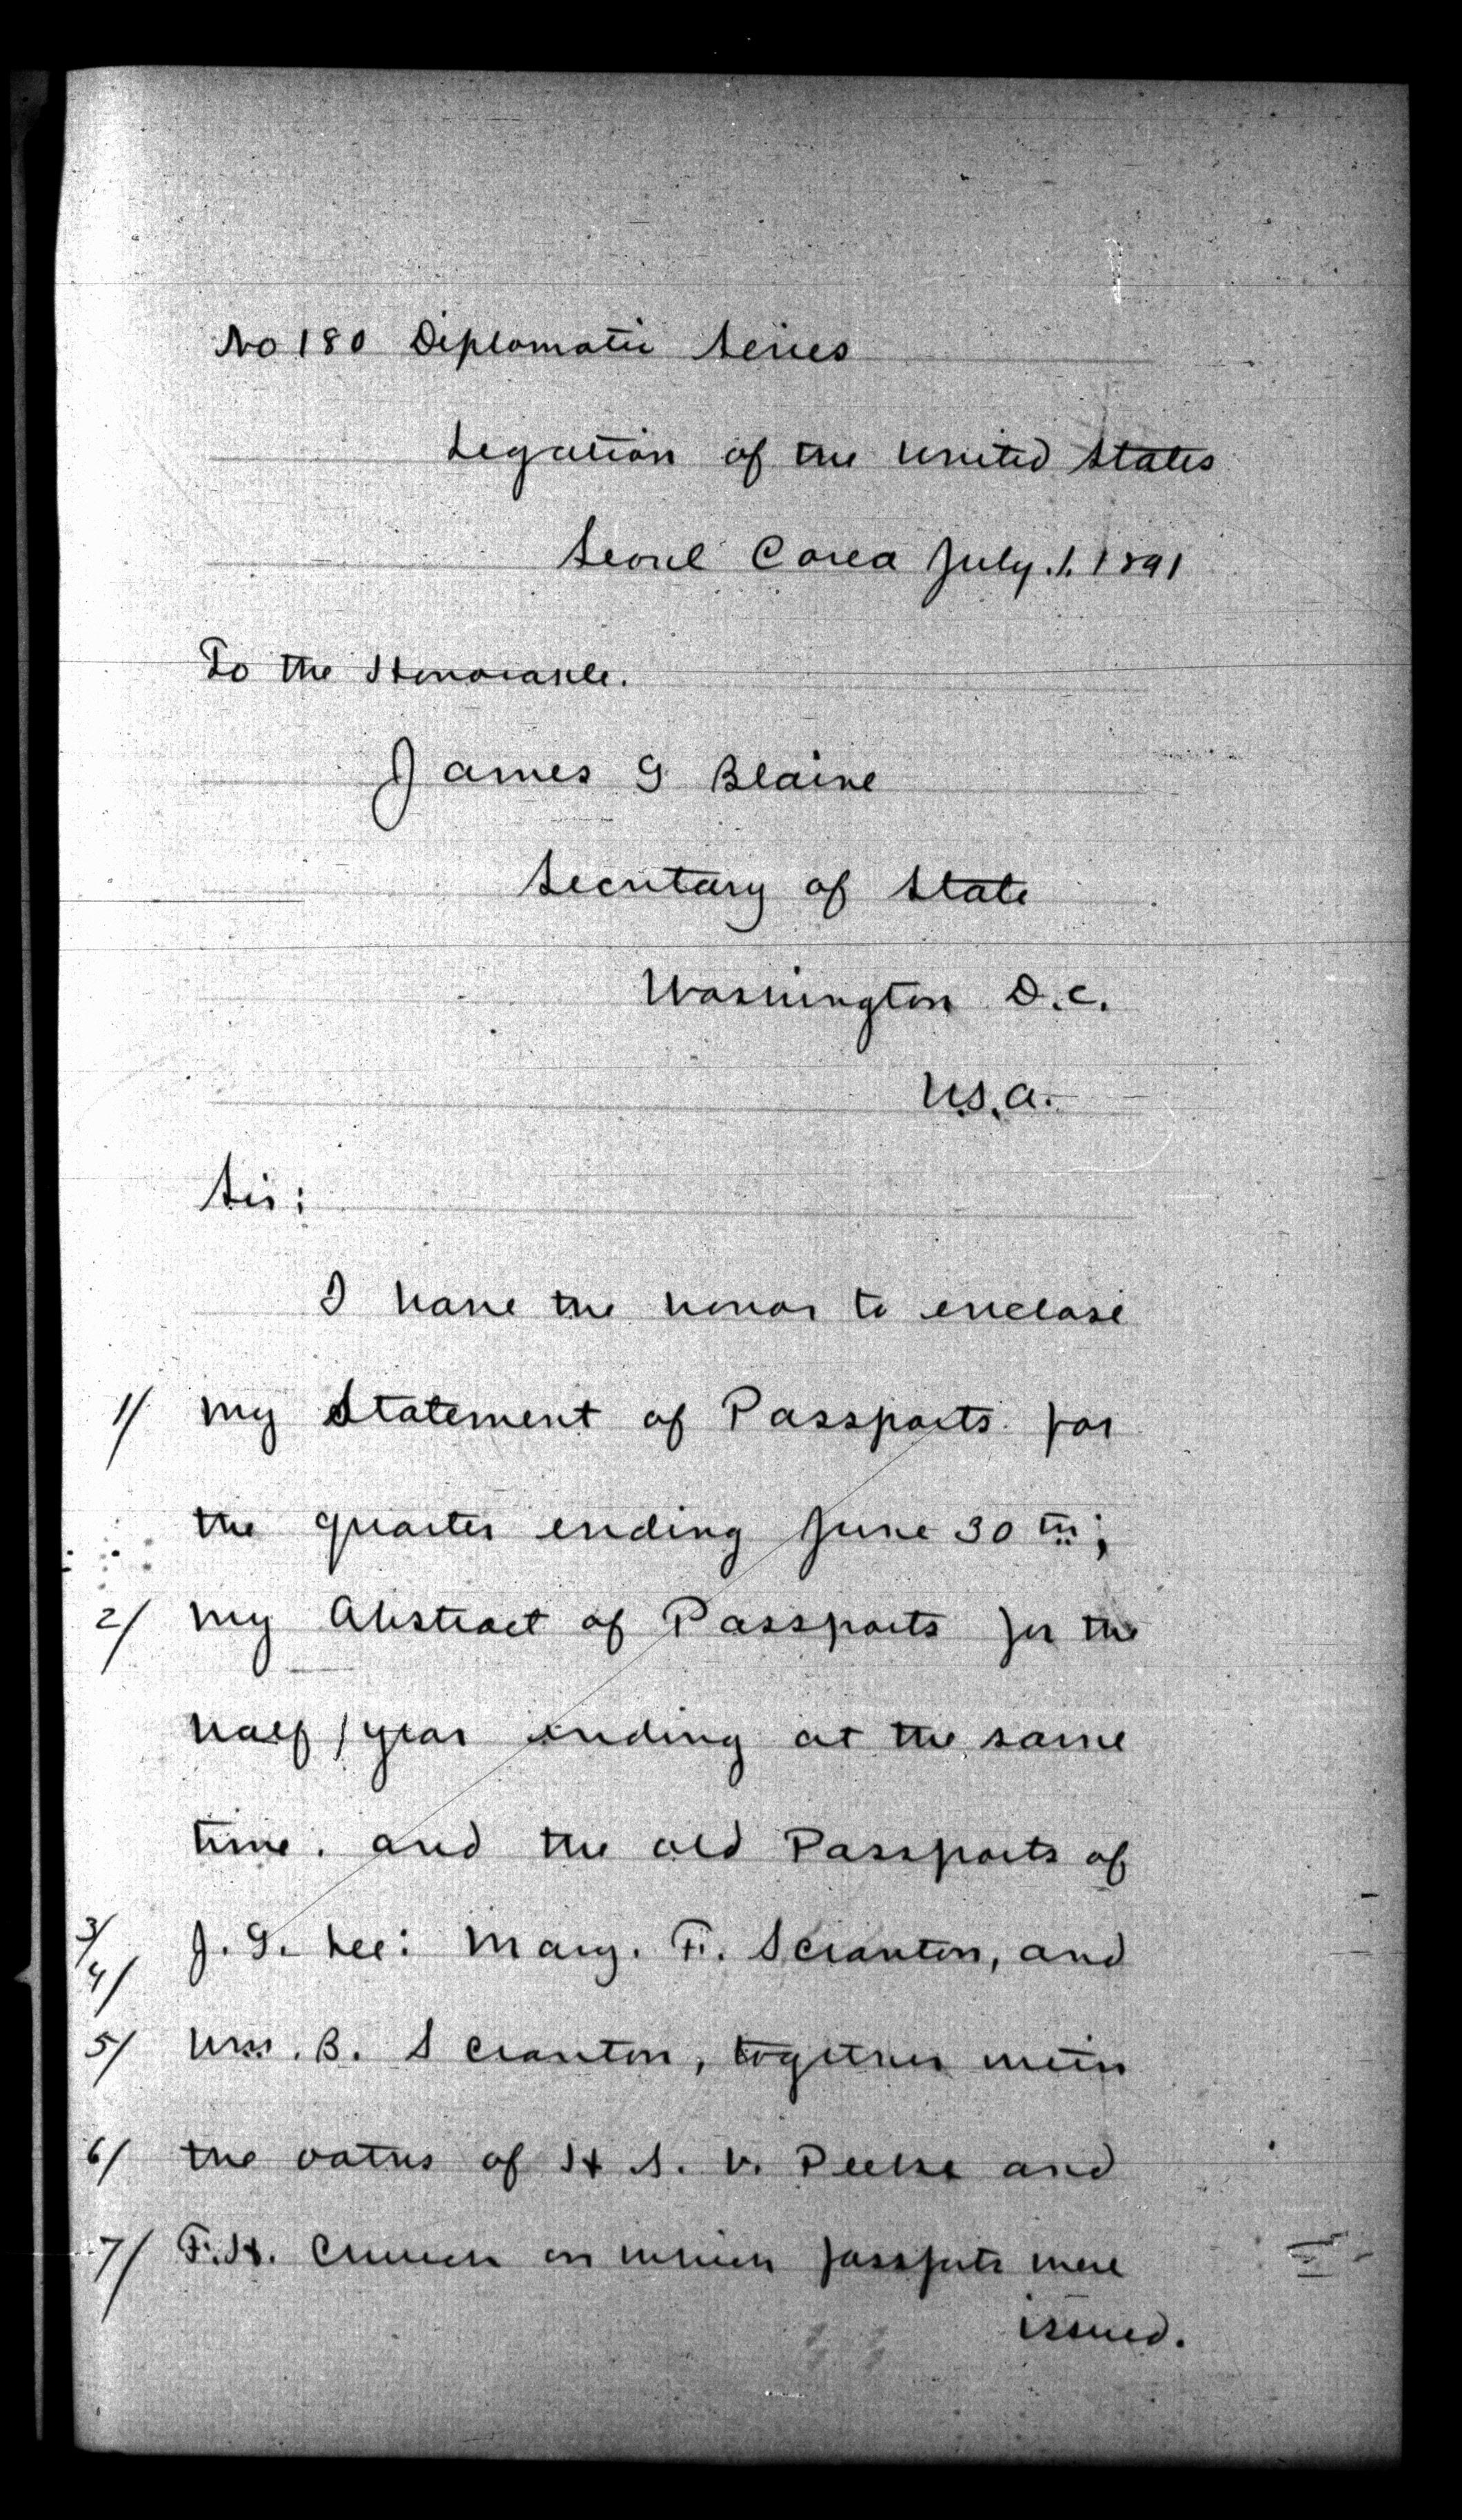 No 180 Diplomatic Series
Legation of the United States
Seoul Corea July. 1. 1891
To the Honorable.
James G Blaine
Secretary of State
Washington D.C.
U.S.A.
Sir:
I have the honor to enclose
1/ my Statement of Passports for
the quarter ending June 30th;
2/ my Abstract of Passports for the
half/year ending at the same
time. and the old Passports of
3/ 4/ J. G. Lee: Mary. F. Scranton, and
5/ Wm. B. Scranton, together with
6/ the oaths of H S. V. Peeke and
7/ F. H. Church on which passports were
issued.